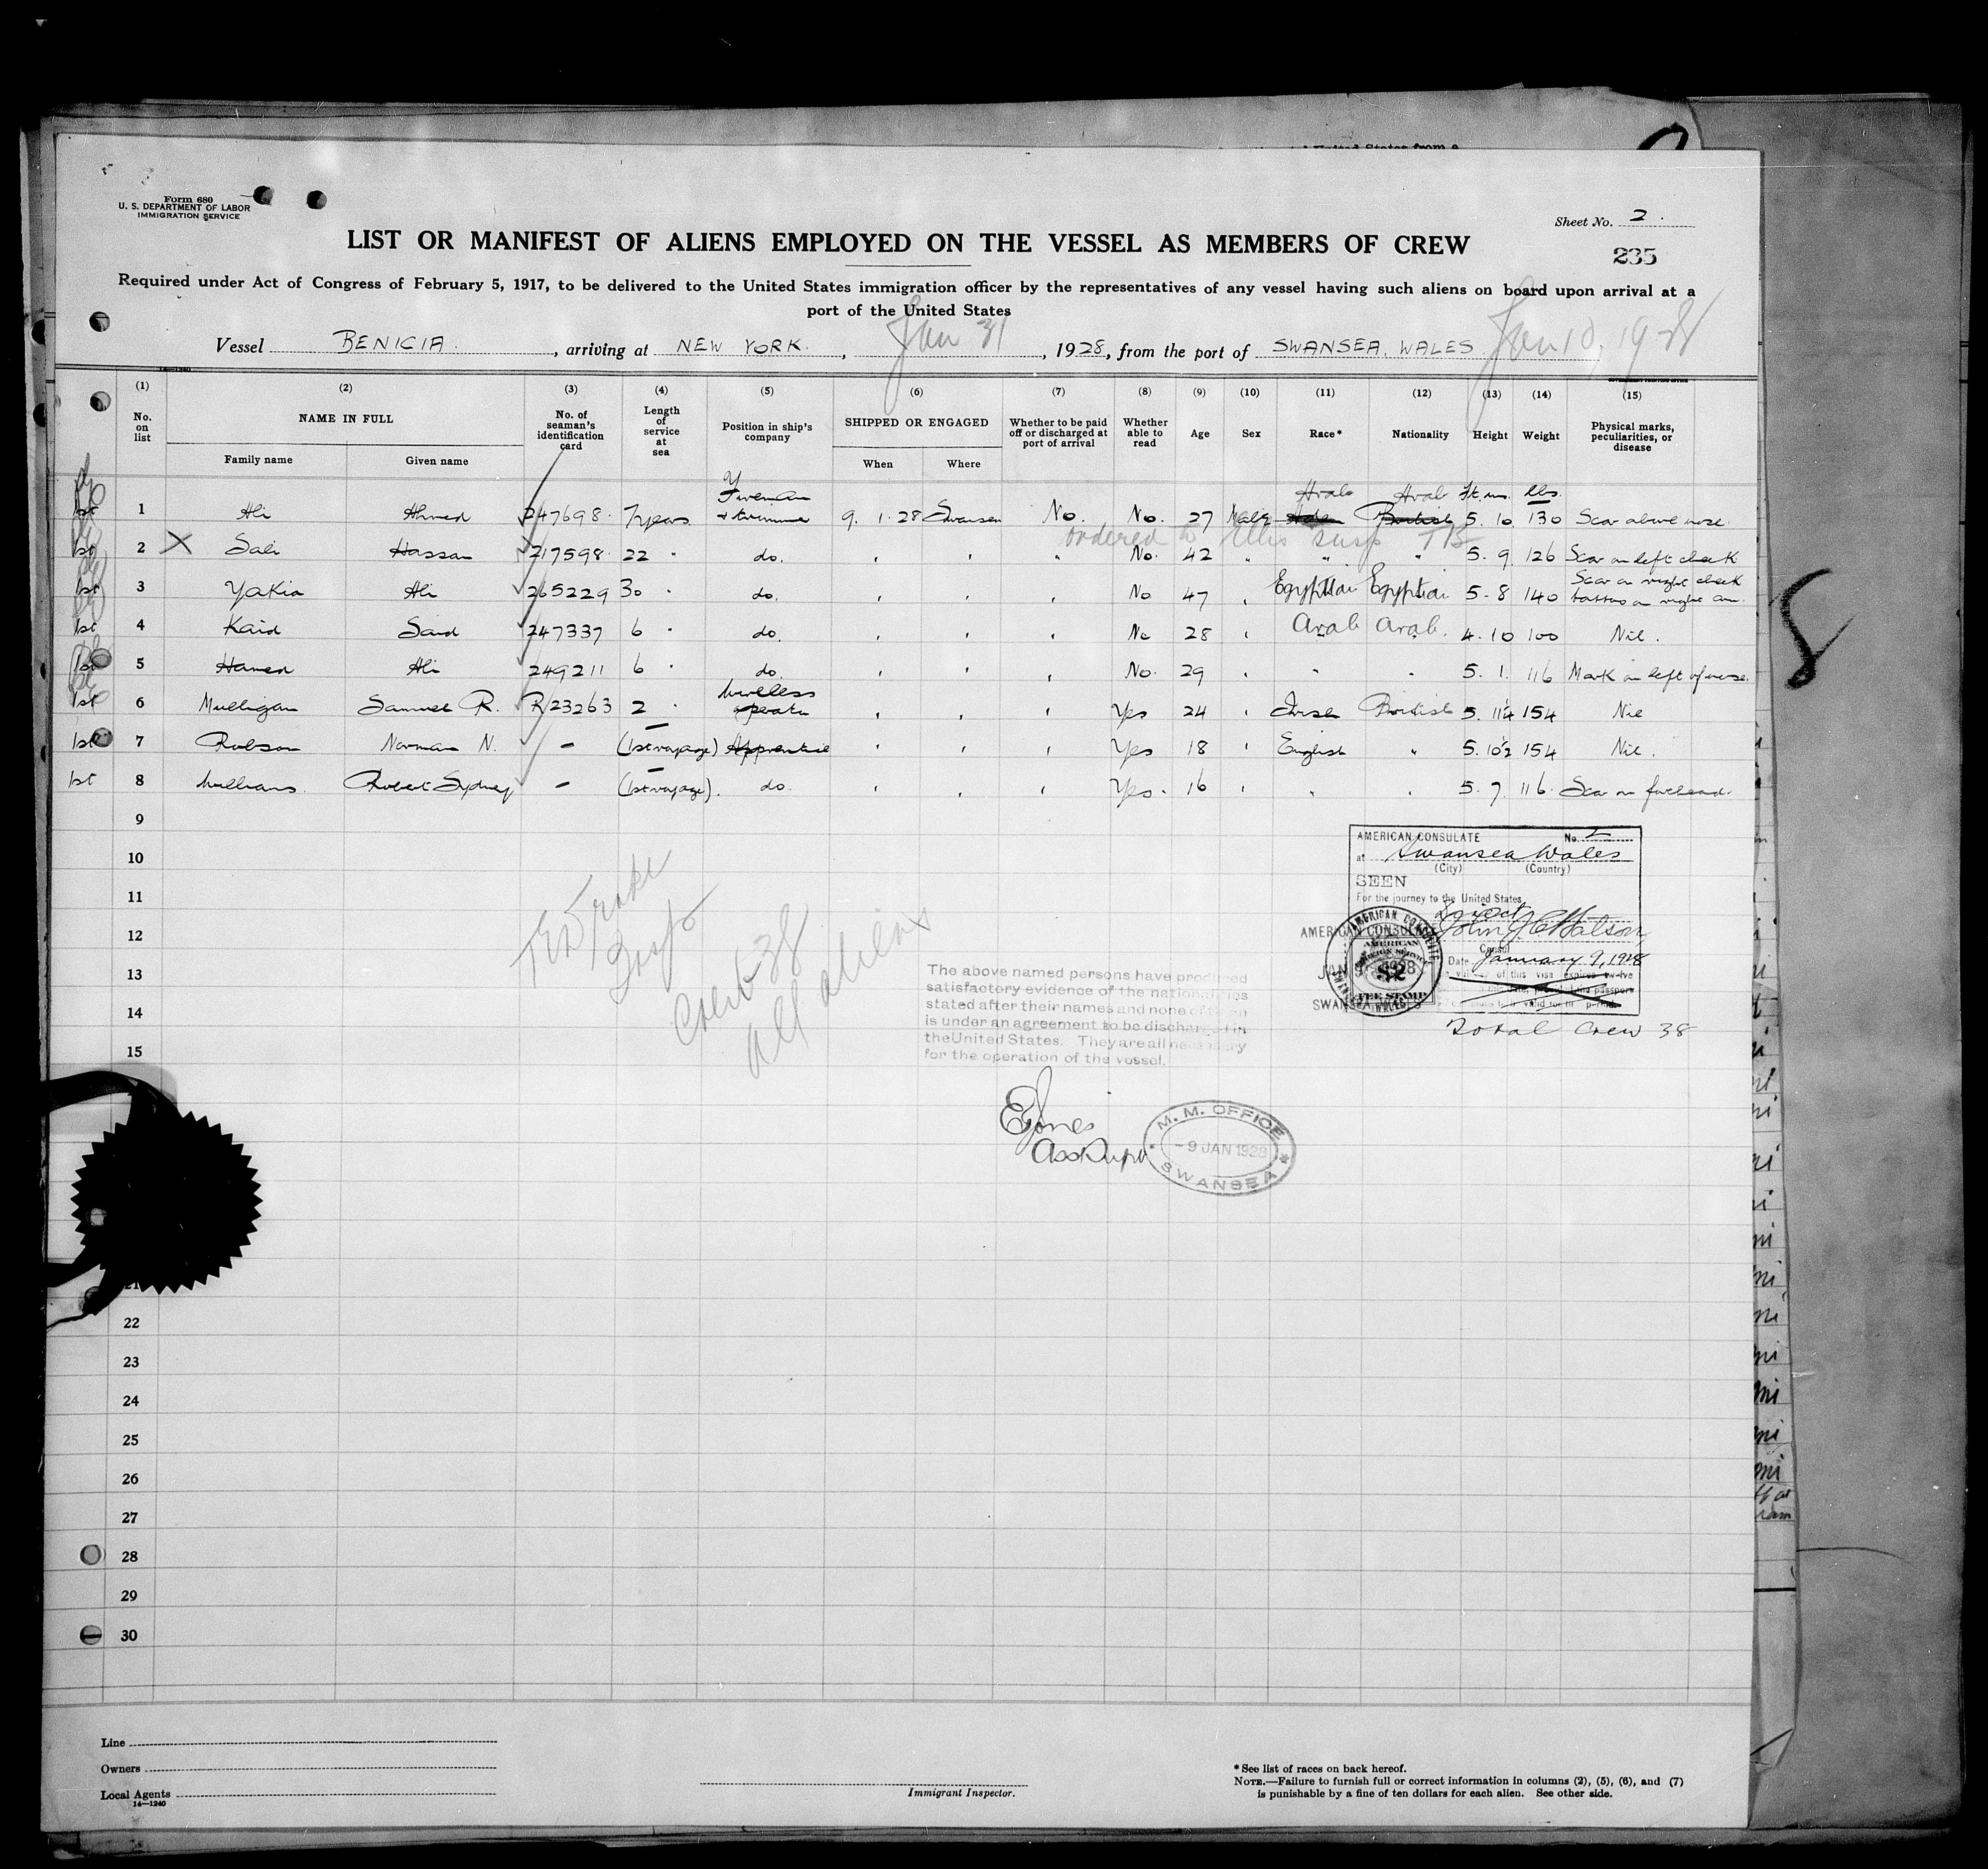 Form 680
U. S. DEPARTMENT OF LABOR
IMMIGRATION SERVICE
Sheet No. 2.
235
LIST OR MANIFEST OF ALIENS EMPLOYED ON THE VESSEL AS MEMBERS OF CREW
Required under Act of Congress of February 5, 1917, to be delivered to the United States immigration officer by the representatives of any vessel having such aliens on board upon arrival at a
port of the United States
Vessel BENICIA., arriving at NEW YORK., Jan 31, 1928, from the port of SWANSEA, WALES Jan 10, 1928
(1) (2) (3) (4) (5) (6) (7) (8) (9) (10) (11) (12) (13) (14) (15)
No. on list NAME IN FULL Family name Given name No. of seaman's identification card Length of service at sea Position in ship's company SHIPPED OR ENGAGED When Where Whether to be paid off or discharged at port of arrival Whether able to read Age Sex Race* Nationality Height Weight Physical marks, peculiarities, or disease
1st 1 Ali Ahmed 247698. 7 years Fireman & trimmer 9. 1. 28 Swansea No. No. 27 Male Arab Arab British Ft. ins. 5. 10 lbs. 130 Scar above nose.
ordered to Ellis susp TB
1st 2 X Sali Hassan 217598. 22 " do. " " " No. 42 " " " 5. 9 126 Scar on left cheek
1st 3 Yakia Ali 265229 30 " do. " " " No 47 " Egyptian Egyptian 5. 8 140 Scar on right cheek tattoo on right arm.
1st 4 Kaid Said 247337 6 " do. " " " No 28 " Arab Arab. 4. 10 100 Nil.
1st 5 Hamed Ali 249211 6 " do. " " " No. 29 " " 5. 1. 116 Mark on left of nose.
1st 6 Mulligan Samuel R. R23263 2 " Wireless operator " " " Yes 24 " Irish British 5. 11¼ 154 Nil
1st 7 Robson Norman N. - (1st voyage) Apprentice " " " Yes 18 " English " 5. 10½ 154 Nil.
1st 8 Williams. Robert Sydney - (1st voyage). do. " " " Yes. 16 " " " 5. 7. 116. Scar on forehead.
9
10
11
12
13
14
15
AMERICAN CONSULATE No. 2
at Swansea Wales
(City) (Country)
SEEN
For the journey to the United States
Direct
John J. C. Watson
Consul
Date January 9, 1928
AMERICAN CONSULATE
SWANSEA WALES
AMERICAN
FOREIGN SERVICE
$2
FEE STAMP
Total Crew 38
Insp
Crew 38
all aliens
The above named persons have produced
satisfactory evidence of the nationalities
stated after their names and none of them
is under an agreement to be discharged in
the United States. They are all necessary
for the operation of the vessel.
E Jones
Ass Supt
M. M. OFFICE
- 9 JAN 1928
SWANSEA
21
22
23
24
25
26
27
28
29
30
8
Line
Owners
Local Agents
14—1240
Immigrant Inspector.
* See list of races on back hereof.
NOTE.—Failure to furnish full or correct information in columns (2), (5), (6), and (7)
is punishable by a fine of ten dollars for each alien. See other side.